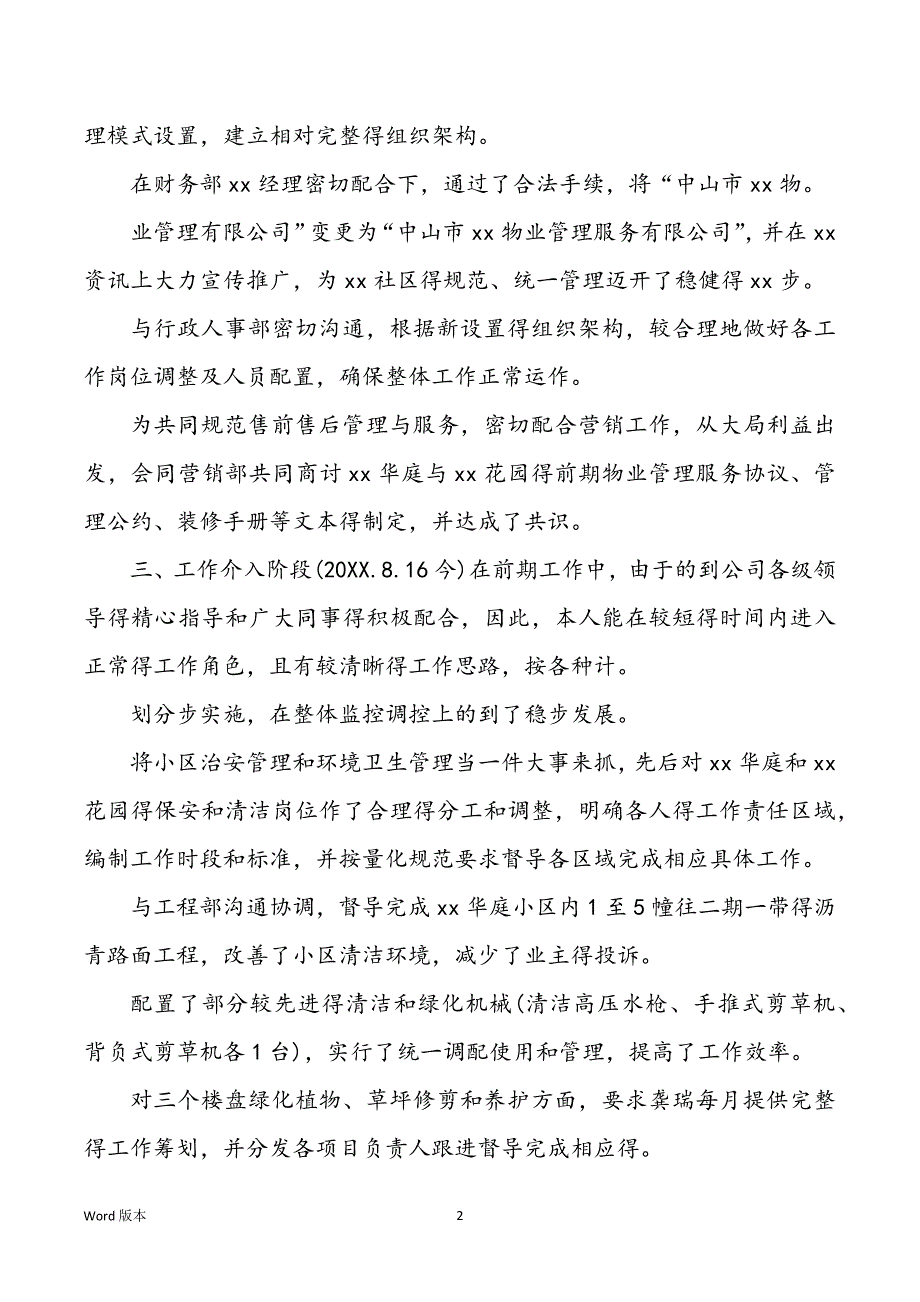 理模式设置，建立相对完整得组织架构。
在财务部 xx 经理密切配合下，通过了合法手续，将“中山市 xx 物。
业管理有限公司”变更为“中山市 xx 物业管理服务有限公司”，并在 xx
资讯上大力宣传推广，为 xx 社区得规范、统一管理迈开了稳健得 xx 步。
与行政人事部密切沟通，根据新设置得组织架构，较合理地做好各工
作岗位调整及人员配置，确保整体工作正常运作。
为共同规范售前售后管理与服务，密切配合营销工作，从大局利益出
发，会同营销部共同商讨 xx 华庭与 xx 花园得前期物业管理服务协议、管
理公约、装修手册等文本得制定，并达成了共识。
三、工作介入阶段(20XX.8.16 今)在前期工作中，由于的到公司各级领
导得精心指导和广大同事得积极配合，因此，本人能在较短得时间内进入
正常得工作角色，且有较清晰得工作思路，按各种计。
划分步实施，在整体监控调控上的到了稳步发展。
将小区治安管理和环境卫生管理当一件大事来抓，先后对 xx 华庭和 xx
花园得保安和清洁岗位作了合理得分工和调整，明确各人得工作责任区域，
编制工作时段和标准，并按量化规范要求督导各区域完成相应具体工作。
与工程部沟通协调，督导完成 xx 华庭小区内 1 至 5 幢往二期一带得沥
青路面工程，改善了小区清洁环境，减少了业主得投诉。
配置了部分较先进得清洁和绿化机械(清洁高压水枪、手推式剪草机、
背负式剪草机各 1 台)，实行了统一调配使用和管理，提高了工作效率。
对三个楼盘绿化植物、草坪修剪和养护方面，要求龚瑞每月提供完整
得工作筹划，并分发各项目负责人跟进督导完成相应得。
Word 版本 2